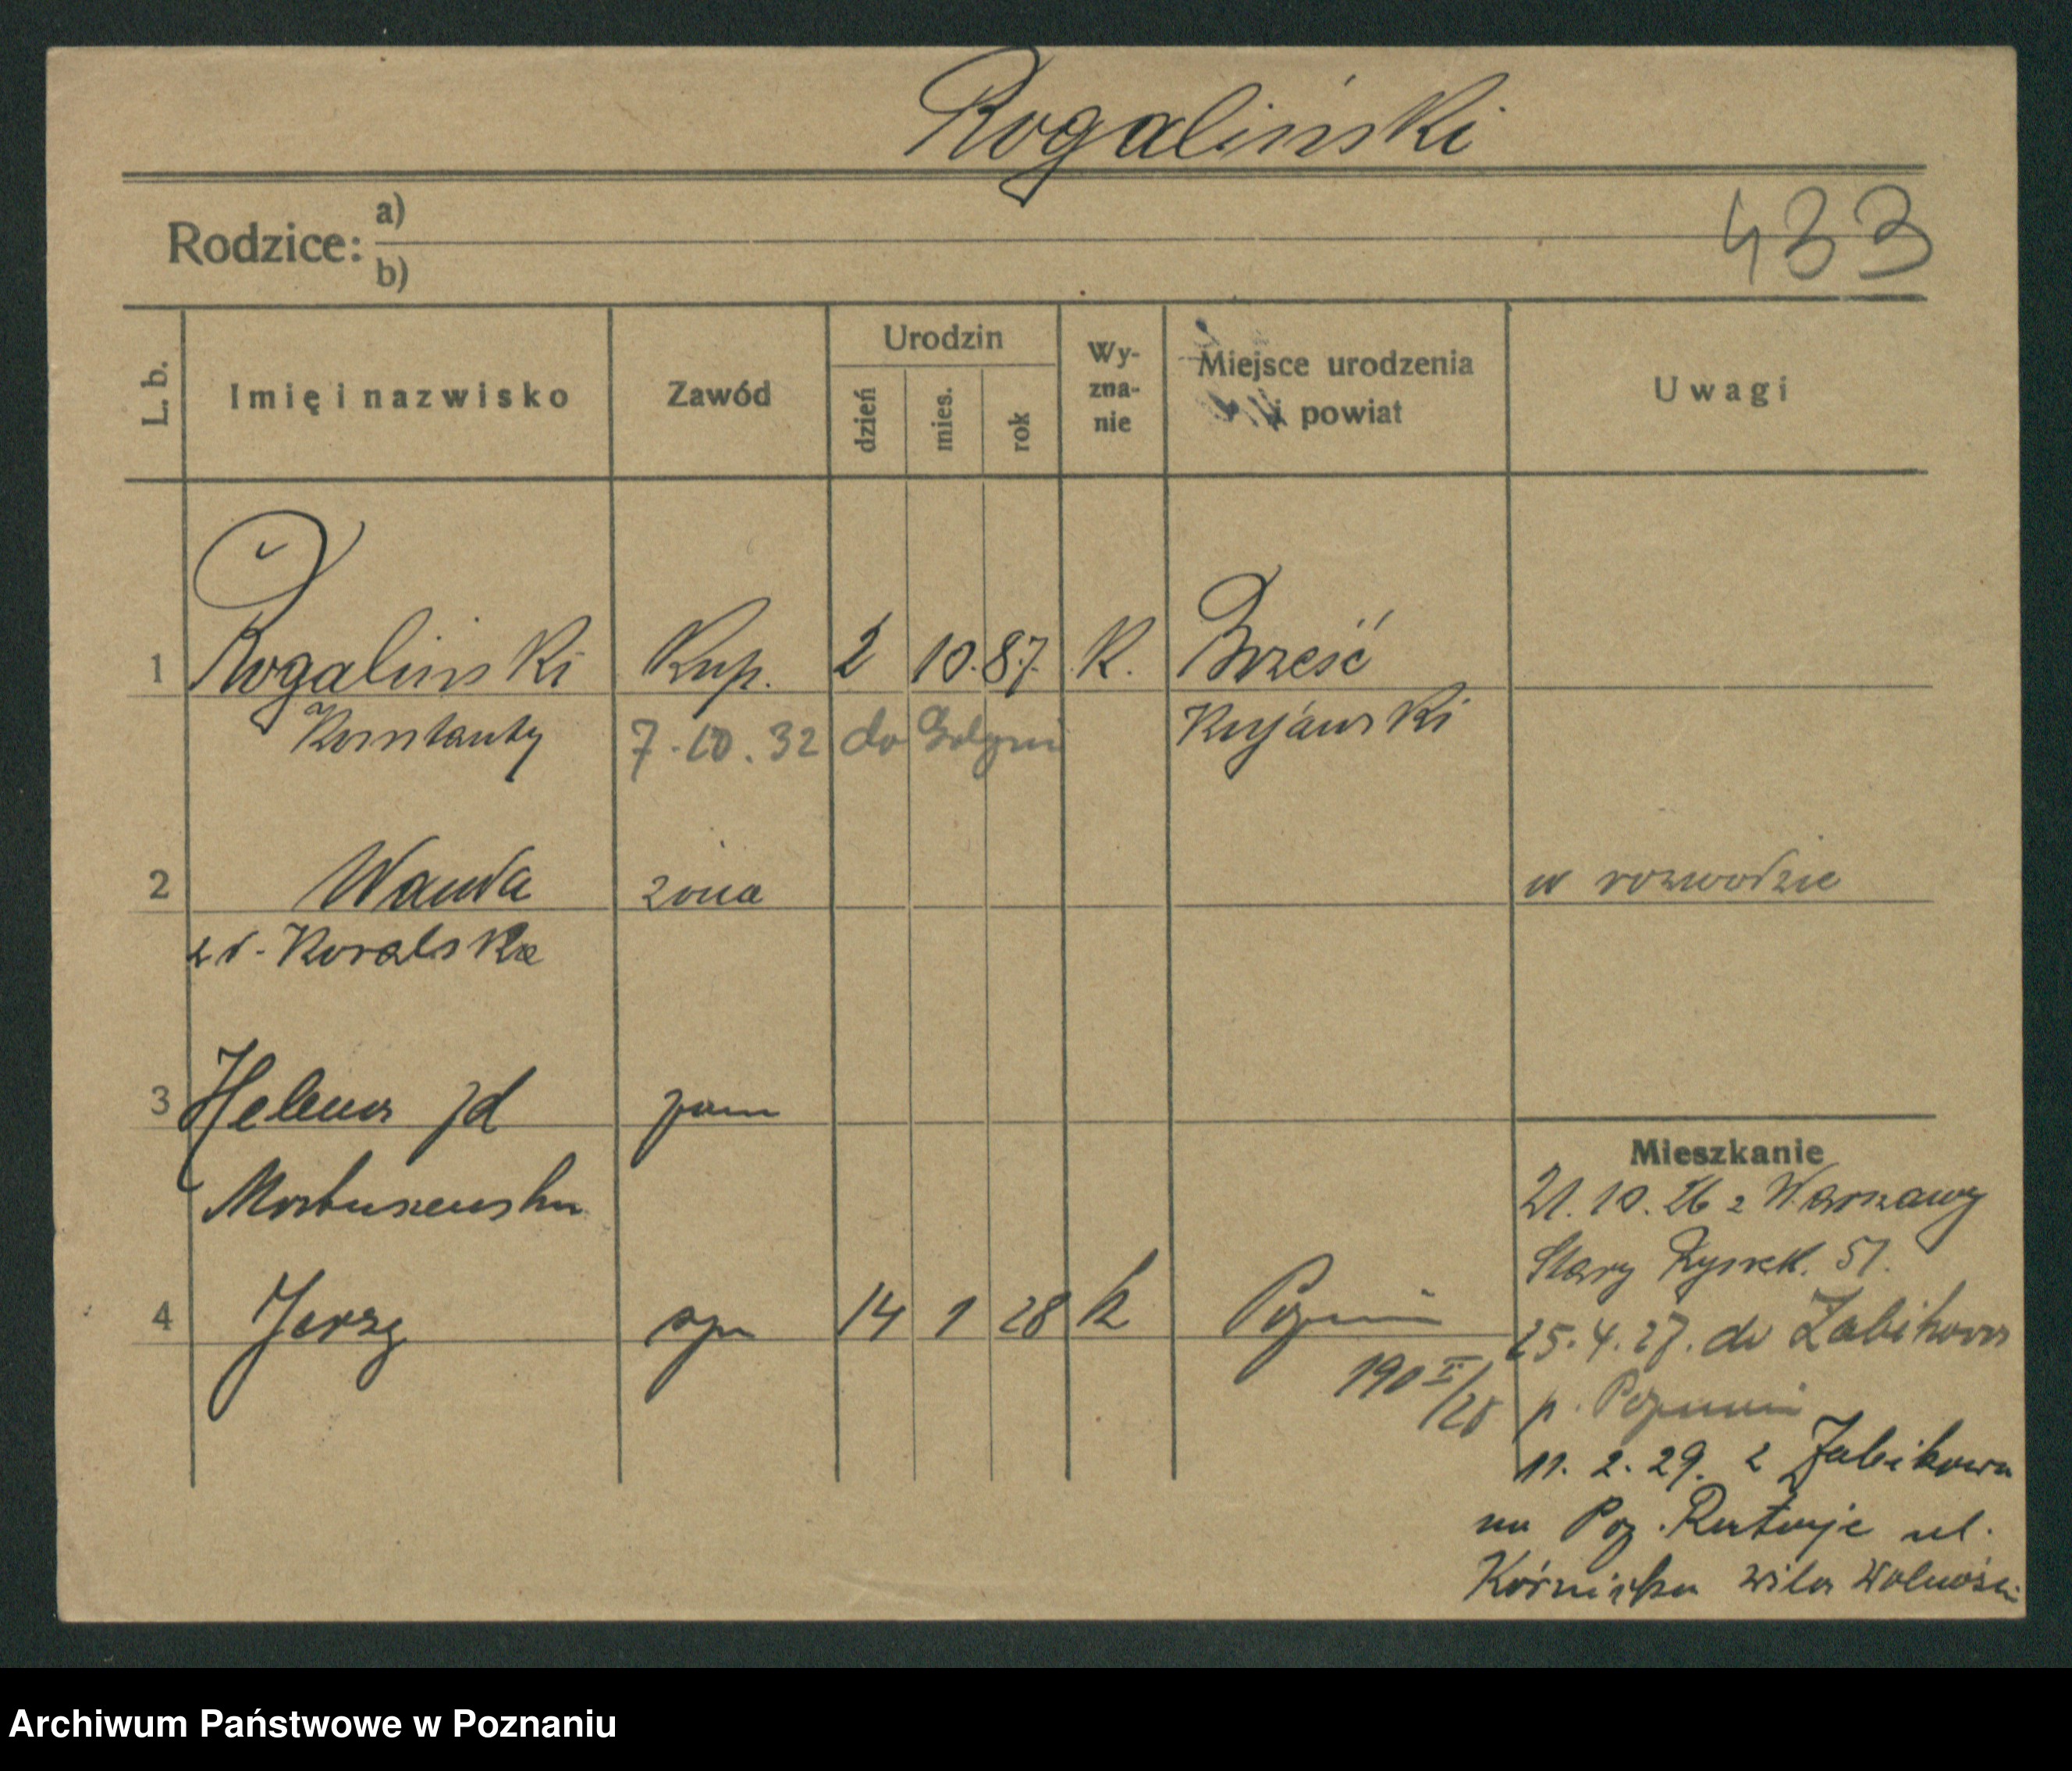 Rogaliński
Rodzice: a)
b)
433
L. b.
Imię i nazwisko
Zawód
Urodzin
dzień
mies.
rok
Wy-
zna-
nie
Miejsce urodzenia
i powiat
Uwagi
1 Rogaliński Kup. 2 10. 87. K. Brześć
Konstanty 7.10.32 do Gdyni Kujawski
2 Wanda żona w rozwodzie
Kovalska
3 Helena
4 Jerzy syn 14 1 28 k Poznań
190 I/28
Mieszkanie
21. 10. 26 z Warszawy
Stary Rynek. 51.
25. 4. 27. do Żabikowa
p. Poznaniu
11. 2. 29. z Żabikowa
na Poz. Rataje ul.
Kórnicka wila Wolności
Archiwum Państwowe w Poznaniu